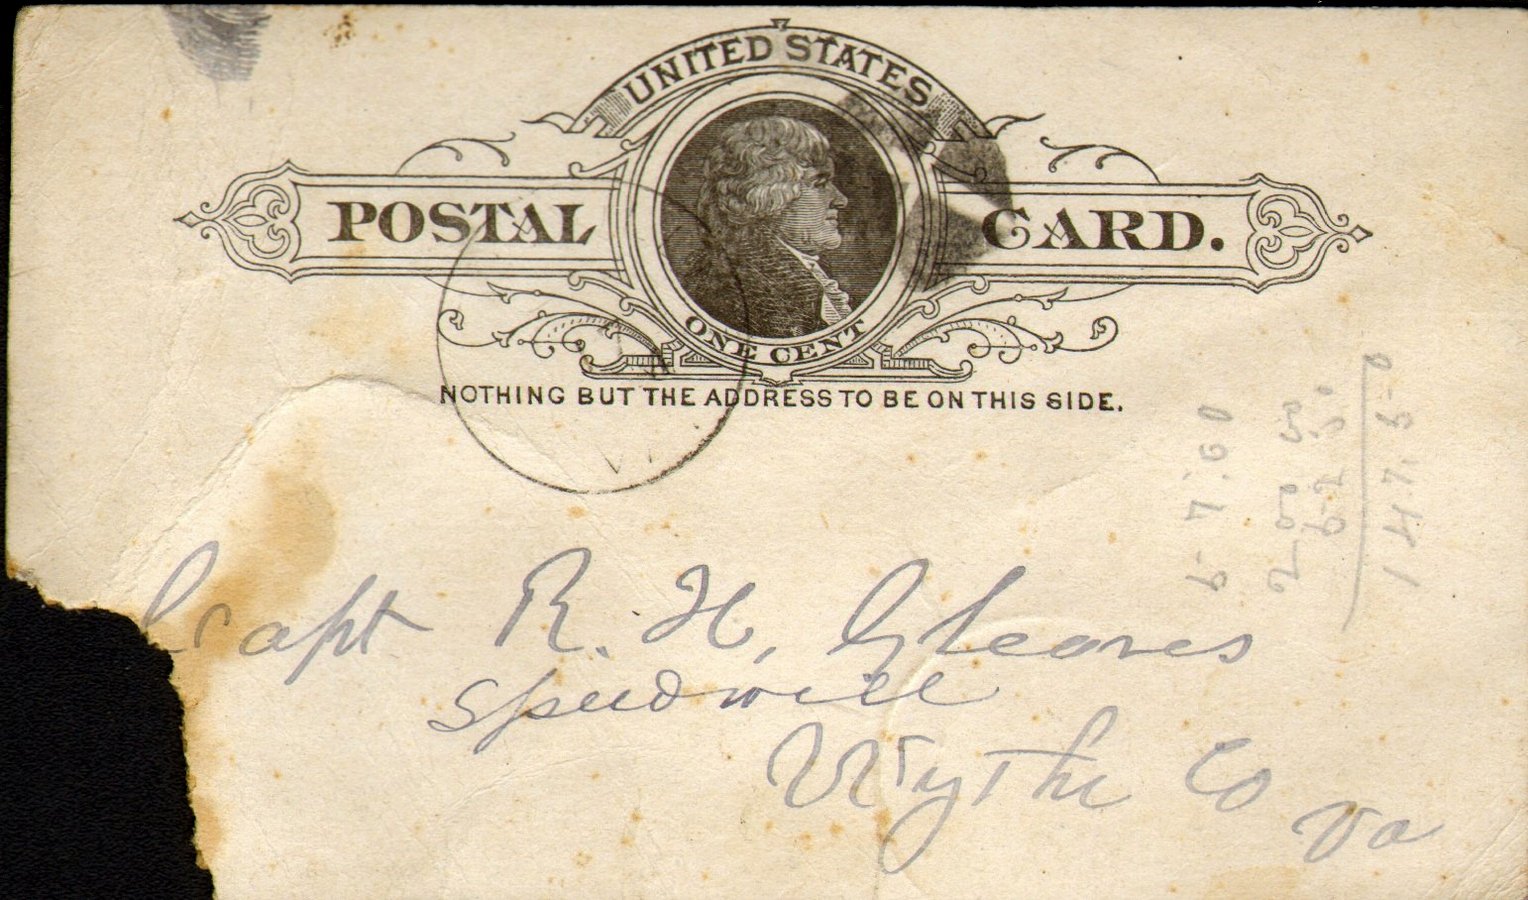 UNITED STATES
POSTAL CARD.
ONE CENT
NOTHING BUT THE ADDRESS TO BE ON THIS SIDE.
Capt R. H. Gleaves
Speedwell
Wythe Co
Va